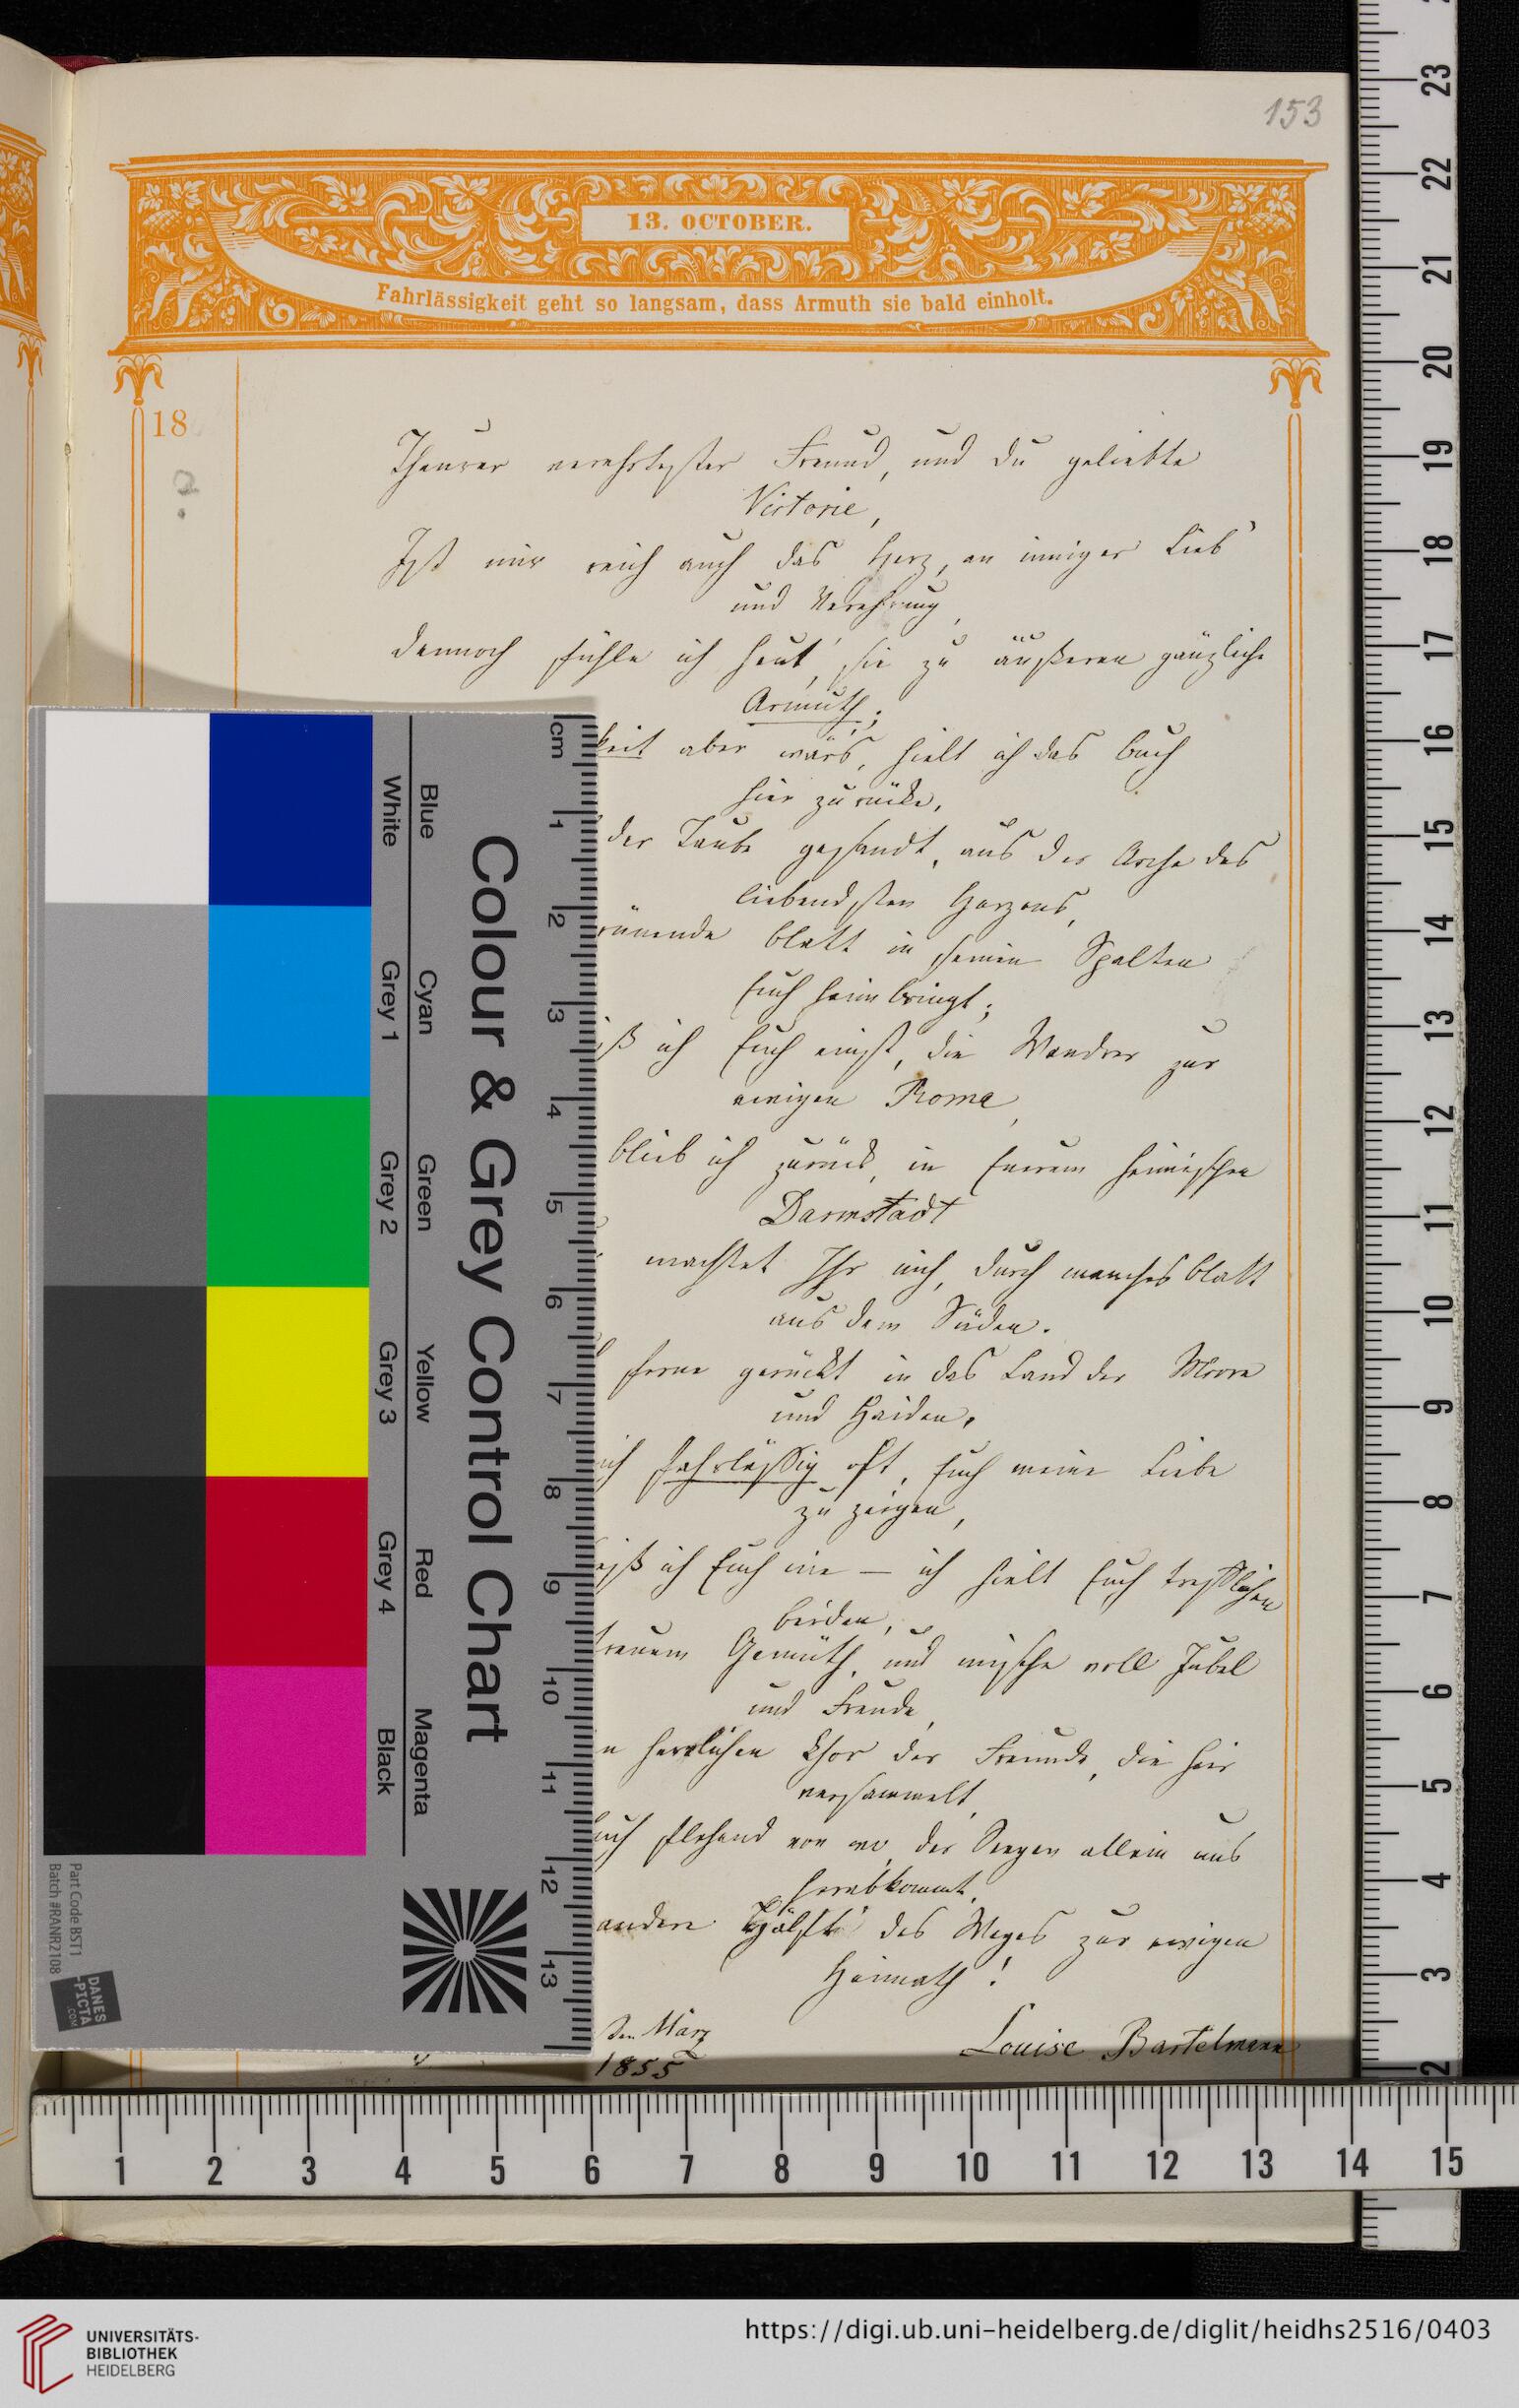 153
13. OCTOBER.
Fahrlässigkeit geht so langsam, dass Armuth sie bald einholt.
18
?
Theurer verehrtester Freund, und du geliebte
Victorie,
Ist mir reich auch das Herz, an inniger Lieb'
und Verehrung,
dennoch fühle ich heut', sie zu äußeren gänzliche
Armuth;
keit aber wärs, hielt ich das Buch
hier zurücke,
der Taube gesandt, aus der Arche des
liebendsten Herzens,
rünende Blatt in seinen Spalten
Euch heimbringt;
ich Euch einst, die Wandrer zur
ewigen Roma,
blieb ich zurück, in Eurem heimischen
Darmstadt
machtet Ihr mich, durch manches Blatt
aus dem Süden.
ferne gerückt in das Land der Moore
und Haiden,
ich fahrlässig oft, Euch meine Liebe
zu zeigen,
ich Euch nie — ich hielt Euch trefflichen
beiden,
treuem Gemüth, und mische voll Jubel
und Freude,
n herrlichen Chor der Freunde, die hier
versammelt,
Euch flehend von wo der Segen allein uns
herabkommt,
andere Hälfte des Weges zur ewigen
Heimath!
den März
1855
Louise Bartelmann
Colour & Grey Control Chart
Blue
Cyan
Green
Yellow
Red
Magenta
White
Grey 1
Grey 2
Grey 3
Grey 4
Black
cm
1
2
3
4
5
6
7
8
9
10
11
12
13
Part Code BST1
Batch #RANR2108
DANES
-PICTA
.COM
23
22
21
20
19
18
17
16
15
14
13
12
11
10
9
8
7
6
5
4
3
2
1 2 3 4 5 6 7 8 9 10 11 12 13 14 15
UNIVERSITÄTS-
BIBLIOTHEK
HEIDELBERG
https://digi.ub.uni-heidelberg.de/diglit/heidhs2516/0403